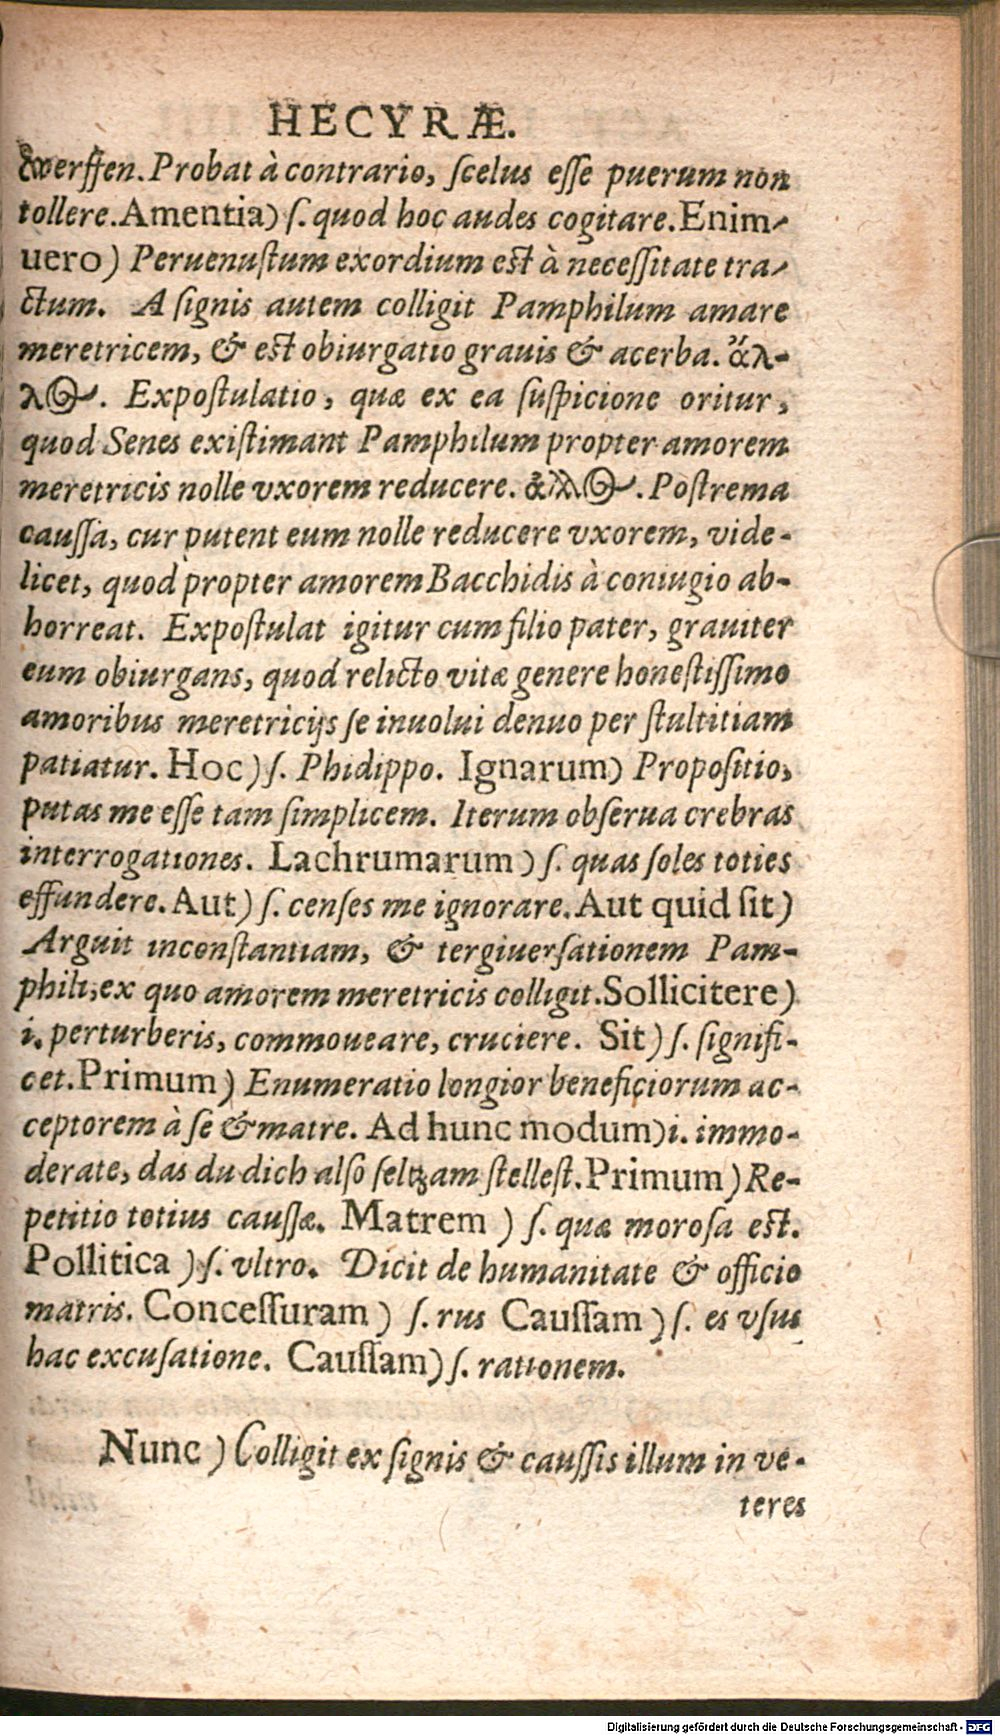 HECYRÆ.
werffen. Probat à contrario, ſcelus eſſe puerum non
tollere. Amentia) ſ. quod hoc audes cogitare. Enim-
uero) Peruenuſtum exordium eſt à neceſſitate tra-
ctum. A ſignis autem colligit Pamphilum amare
meretricem, & eſt obiurgatio grauis & acerba. ἄλ-
λος. Expoſtulatio, quæ ex ea ſuſpicione oritur,
quod Senes exiſtimant Pamphilum propter amorem
meretricis nolle vxorem reducere. ἄλλος. Poſtrema
cauſſa, cur putent eum nolle reducere vxorem, vide-
licet, quod propter amorem Bacchidis à coniugio ab-
horreat. Expoſtulat igitur cum filio pater, grauiter
eum obiurgans, quod relicto vitæ genere honeſtiſſimo
amoribus meretricijs ſe inuolui denuo per ſtultitiam
patiatur. Hoc) ſ. Phidippo. Ignarum) Propoſitio,
putas me eſſe tam ſimplicem. Iterum obſerua crebras
interrogationes. Lachrumarum) ſ. quas ſoles toties
effundere. Aut) ſ. cenſes me ignorare. Aut quid ſit)
Arguit inconſtantiam, & tergiuerſationem Pam-
phili, ex quo amorem meretricis colligit. Sollicitere)
i. perturberis, commoueare, cruciere. Sit) ſ. ſignifi-
cet. Primum) Enumeratio longior beneficiorum ac-
ceptorem à ſe & matre. Ad hunc modum) i. immo-
derate, das du dich alſo ſeltzam ſtelleſt. Primum) Re-
petitio totius cauſſæ. Matrem) ſ. quæ moroſa eſt.
Pollitica) ſ. vltro. Dicit de humanitate & officio
matris. Conceſſuram) ſ. rus Cauſſam) ſ. es vſus
hac excuſatione. Cauſſam) ſ. rationem.
Nunc) Colligit ex ſignis & cauſſis illum in ve-
teres
Digitalisierung gefördert durch die Deutsche Forschungsgemeinschaft - DFG